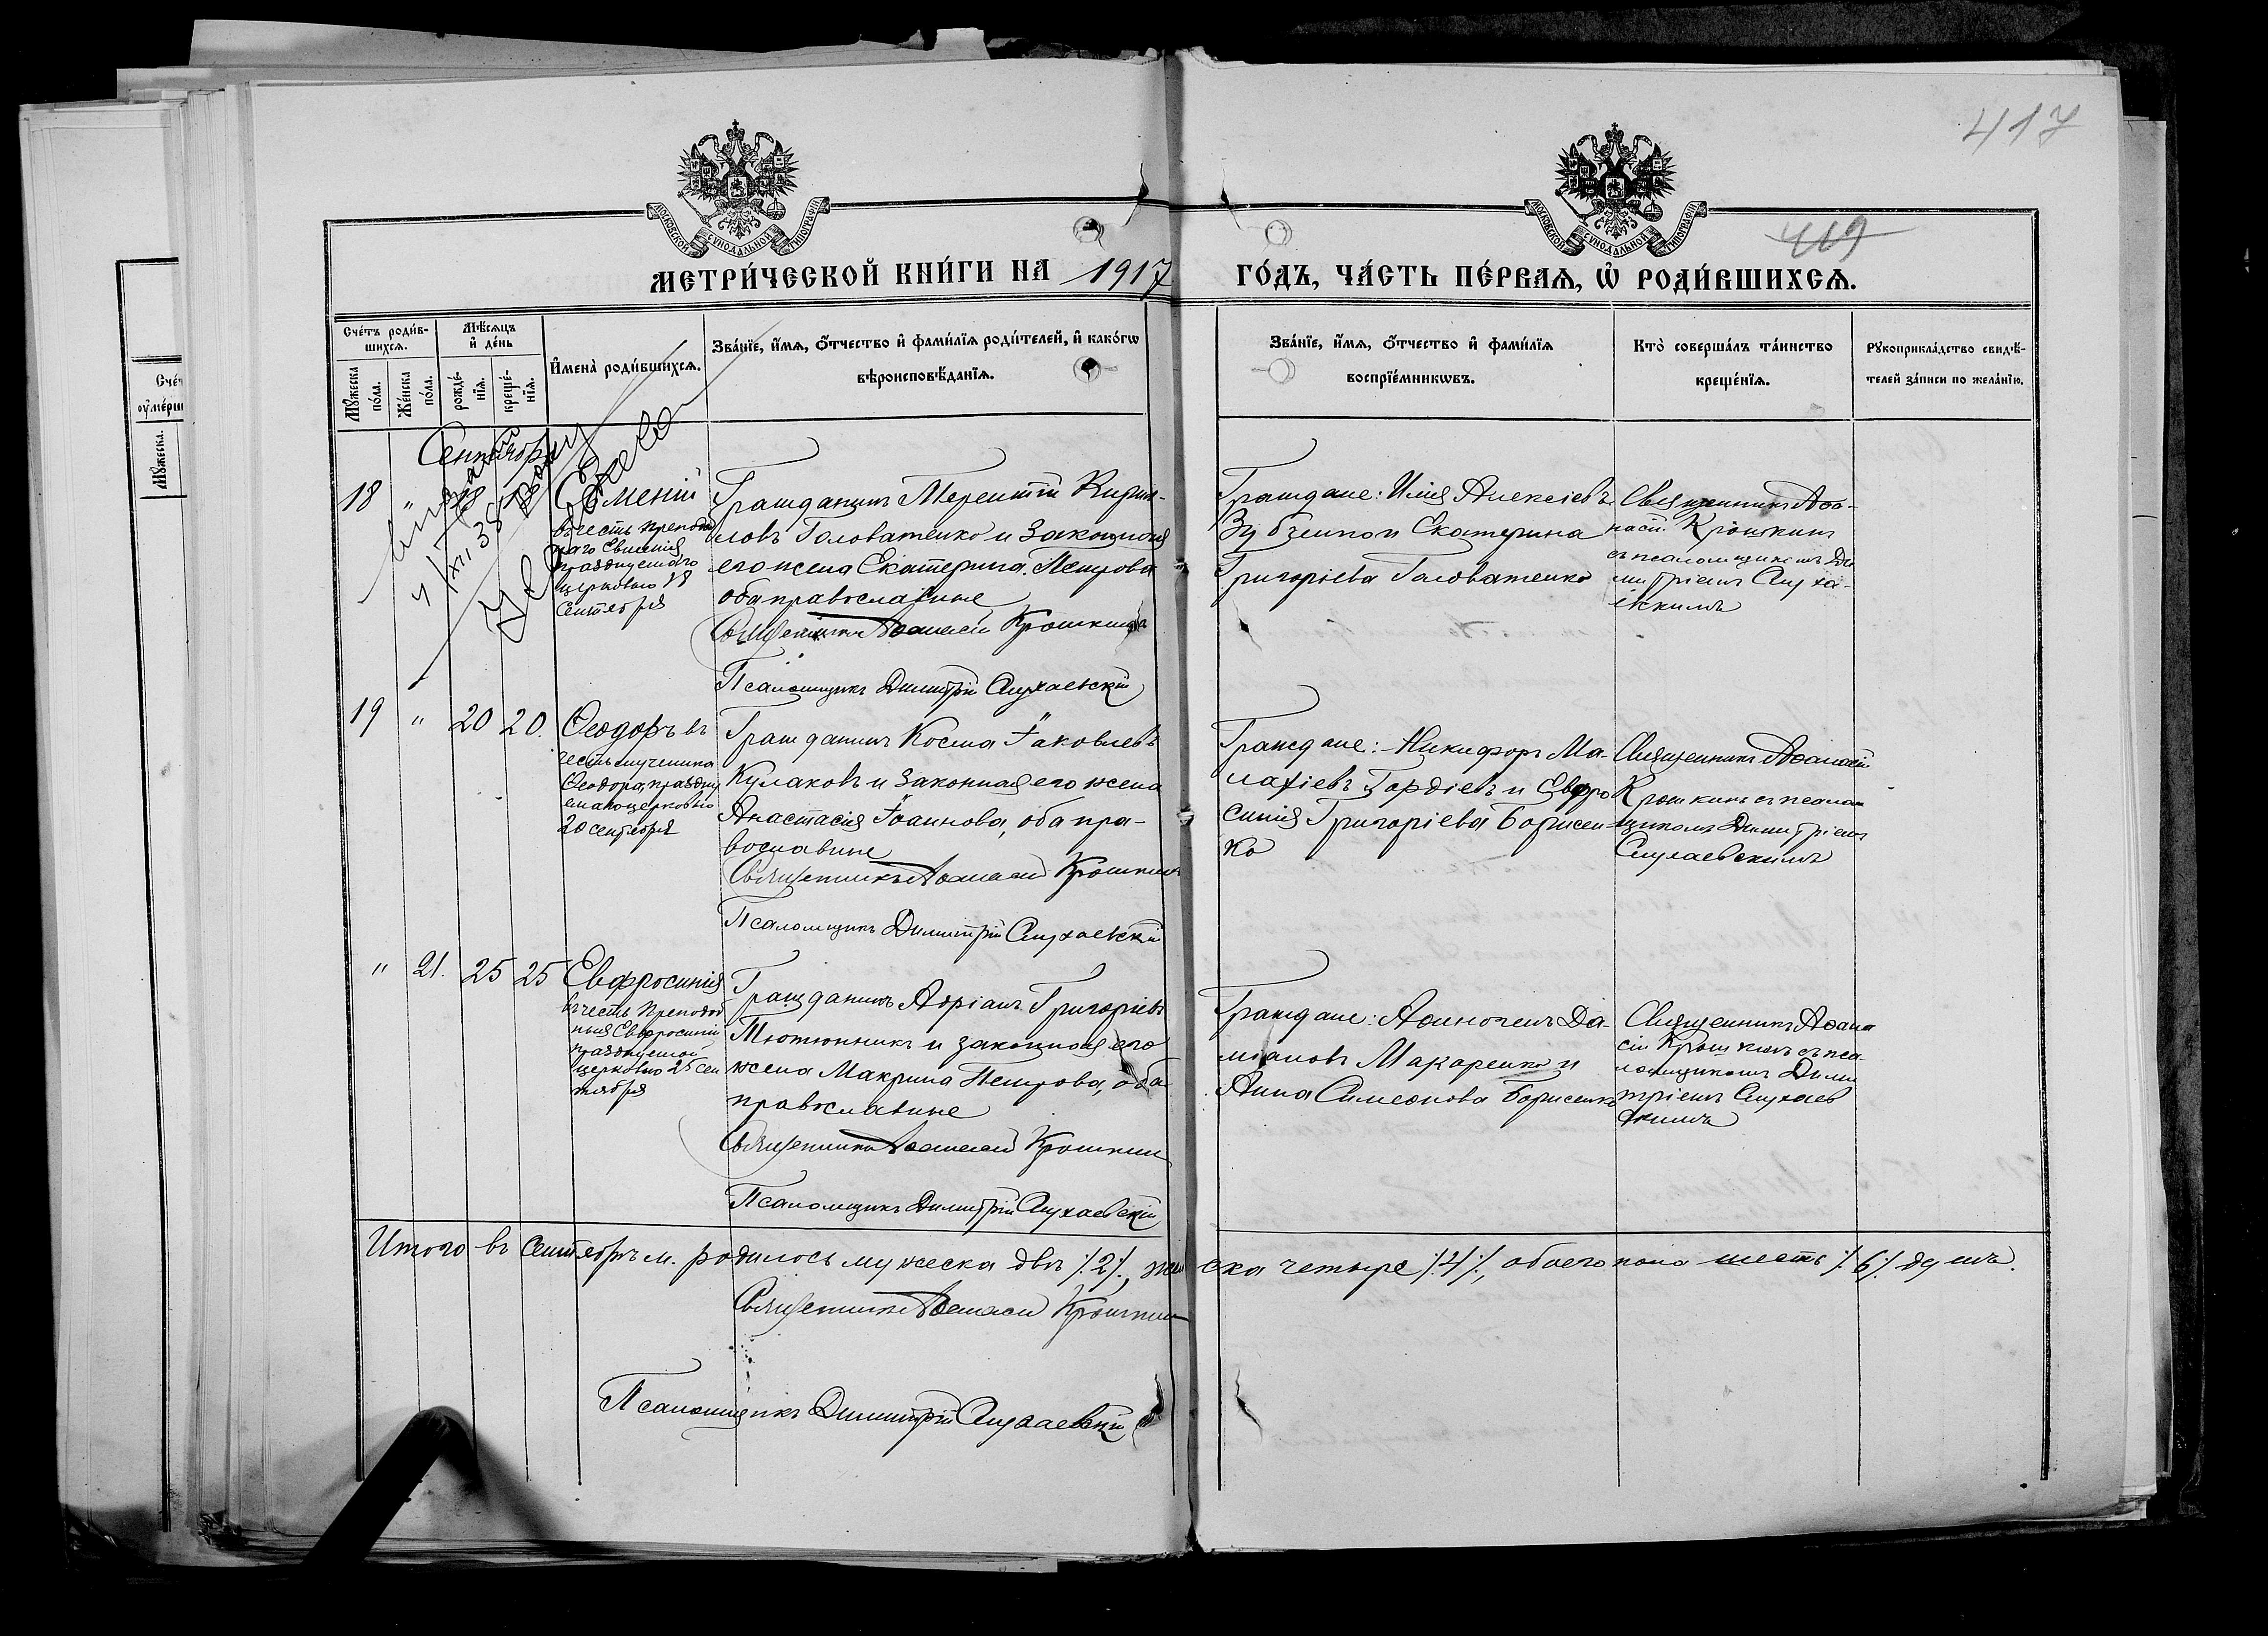 417
419
МОСКОВСКОЙ СѴНОДАЛЬНОЙ ТИПОГРАФІИ
МОСКОВСКОЙ СѴНОДАЛЬНОЙ ТИПОГРАФІИ
МЕТРИ́ЧЕСКОЙ КНИ́ГИ НА 1917 ГО́ДЪ, ЧА́СТЬ ПЕ́РВАЯ, Ѡ РОДИ́ВШИХСЯ.
Сче́тъ роди́в-
шихся.
Мѣсяцъ
и де́нь
Имена̀ роди́вшихся.
Зва́нїе, и́мя, о́тчество и фами́лїя роди́телей, и како́гѡ
вѣроисповѣ́данїя.
Зва́нїе, и́мя, о́тчество и фами́лїя
воспрїе́мникѡвъ.
Кто̀ соверша́лъ та́инство
креще́нїя.
Рꙋкоприкла́дство свидѣ́-
телей за́писи по жела́нїю.
Мꙋ́жеска
по́ла.
Же́нска
по́ла.
рожде́-
нїя.
креще́-
нїя.
Сентябрь
18 " 18
Евменій
въ честь преподоб
наго Евменія
празднуемаго
церковью 18
Сентября
Гражданинъ Терентій Кирил-
ловъ Головатенко и законная
его жена Екатерина Петрова
оба православные
Священникъ Аѳанасій Крошкинъ
Псаломщикъ Димитрій Слухаевскій
Граждане: Илія Алексіевъ
Зубенко и Екатерина
Григоріева Головатенко
Священникъ Аѳа-
насій Крошкинъ
съ псаломщикомъ Ди
митріемъ Слуха-
евскимъ
19 " 20 20.
Ѳеодоръ въ
честь мученика
Ѳеодора, праздну
емаго церковью
20 сентября
Гражданинъ Косма Іаковлевъ
Кулаковъ и законная его жена
Анастасія Іоаннова, оба пра-
вославные
Священникъ Аѳанасій Крошкинъ
Псаломщикъ Димитрій Слухаевскій
Граждане: Никифоръ Ма-
лахіевъ Гордіевъ и Евфро
синія Григоріева Борисен-
ко
Священникъ Аѳанасій
Крошкинъ съ псалом
щикомъ Димитріемъ
Слухаевскимъ
" 21. 25 25
Евфросинія
въ честь преподоб
ныя Евфросиніи
празднуемой
церковью 25 сен
тября
Гражданинъ Адріанъ Григоріевъ
Тютюнникъ и законная его
жена Макрина Петрова, оба
православные
Священникъ Аѳанасій Крошкинъ
Псаломщикъ Димитрій Слухаевскій
Граждане: Аѳиногенъ Да-
міановъ Макаренко и
Анна Симеонова Борисенко
Священникъ Аѳана
сій Крошкинъ съ пса-
ломщикомъ Дими
тріемъ Слухаев
скимъ
Итого въ Сентябрѣ м. родилось мужеска двѣ /2/, женска четыре /4/, обоего пола шесть /6/ душъ.
Священникъ Аѳанасій Крошкинъ
Псаломщикъ Димитрій Слухаевскій
Сче́т
оуме́рш
Мꙋ́жеска.